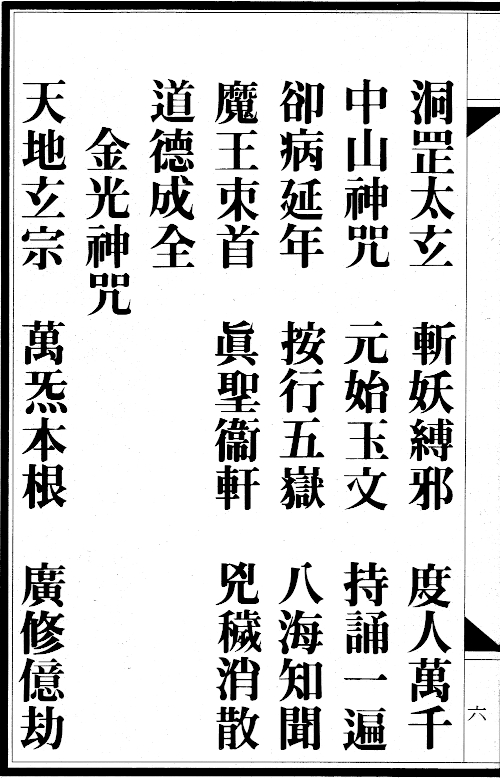 洞罡太玄　斬妖縛邪　度人萬千
中山神咒　元始玉文　持誦一遍
卻病延年　按行五嶽　八海知聞
魔王束首　眞聖衞軒　兇穢消散
道德成全
金光神咒
天地玄宗　萬炁本根　廣修億劫
六